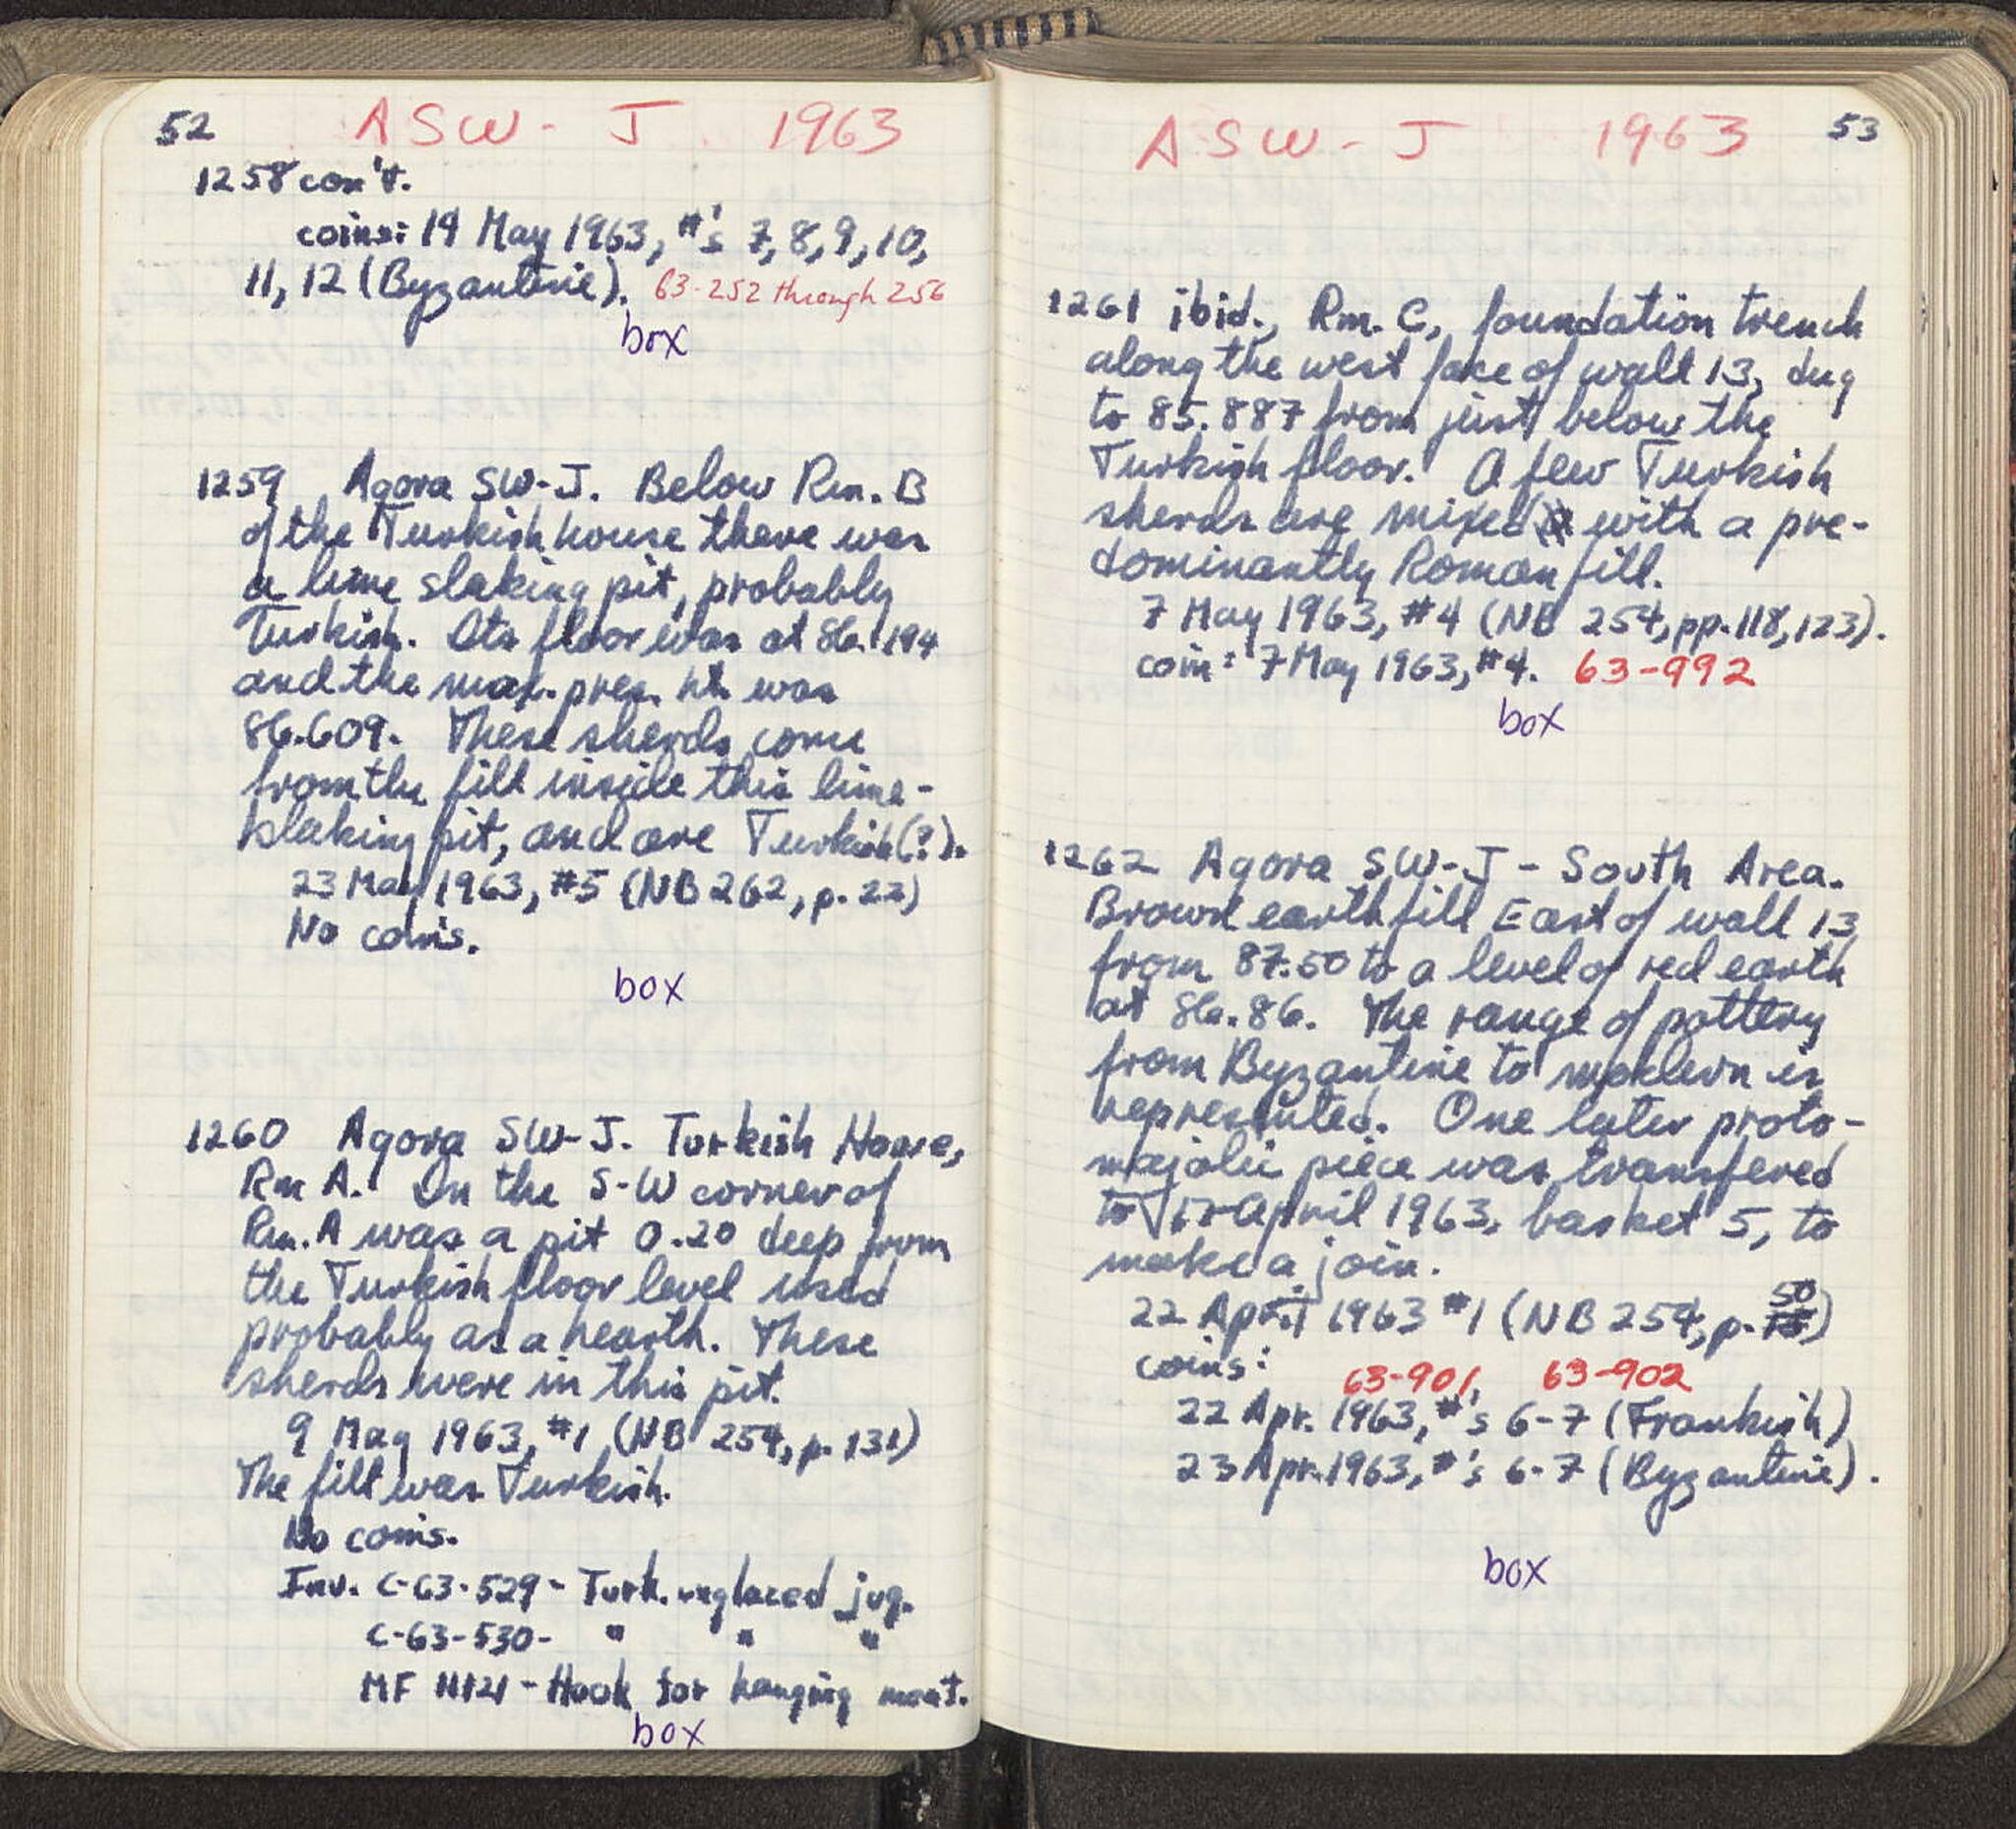 52 ASW - J 1963
1258 con't.
coins: 14 May 1963, #'s 7, 8, 9, 10,
11, 12 (Byzantine). 63-252 through 256
box
1259 Agora SW-J. Below Rm. B
of the Turkish house there was
a lime slaking pit, probably
Turkish. Its floor was at 86.194
and the max. pres. ht. was
86.609. These sherds come
from the fill inside this lime-
slaking pit, and are Turkish(?).
23 May 1963, #5 (NB 262, p. 22)
No coins.
box
1260 Agora SW-J. Turkish House,
Rm A. In the S-W corner of
Rm. A was a pit 0.20 deep from
the Turkish floor level used
probably as a hearth. These
sherds were in this pit.
9 May 1963, #1 (NB 254, p. 131)
The fill was Turkish.
No coins.
Inv. C-63-529 - Turk. unglazed jug.
C-63-530- " " "
MF 11121 - Hook for hanging meat.
box
ASW - J 1963 53
1261 ibid., Rm. C, foundation trench
along the west face of wall 13, dug
to 85.887 from just below the
Turkish floor. A few Turkish
sherds are mixed with a pre-
dominantly Roman fill.
7 May 1963, #4 (NB 254, pp. 118, 123).
coin: 7 May 1963, #4. 63-992
box
1262 Agora SW-J - South Area.
Brown earth fill East of wall 13
from 87.50 to a level of red earth
at 86.86. The range of pottery
from Byzantine to modern is
represented. One later proto-
majolic piece was transfered
to April 1963, basket 5, to
make a join.
22 April 1963 #1 (NB 254, p. 50)
coins: 63-901, 63-902
22 Apr. 1963, #'s 6-7 (Frankish)
23 Apr. 1963, #'s 6-7 (Byzantine).
box